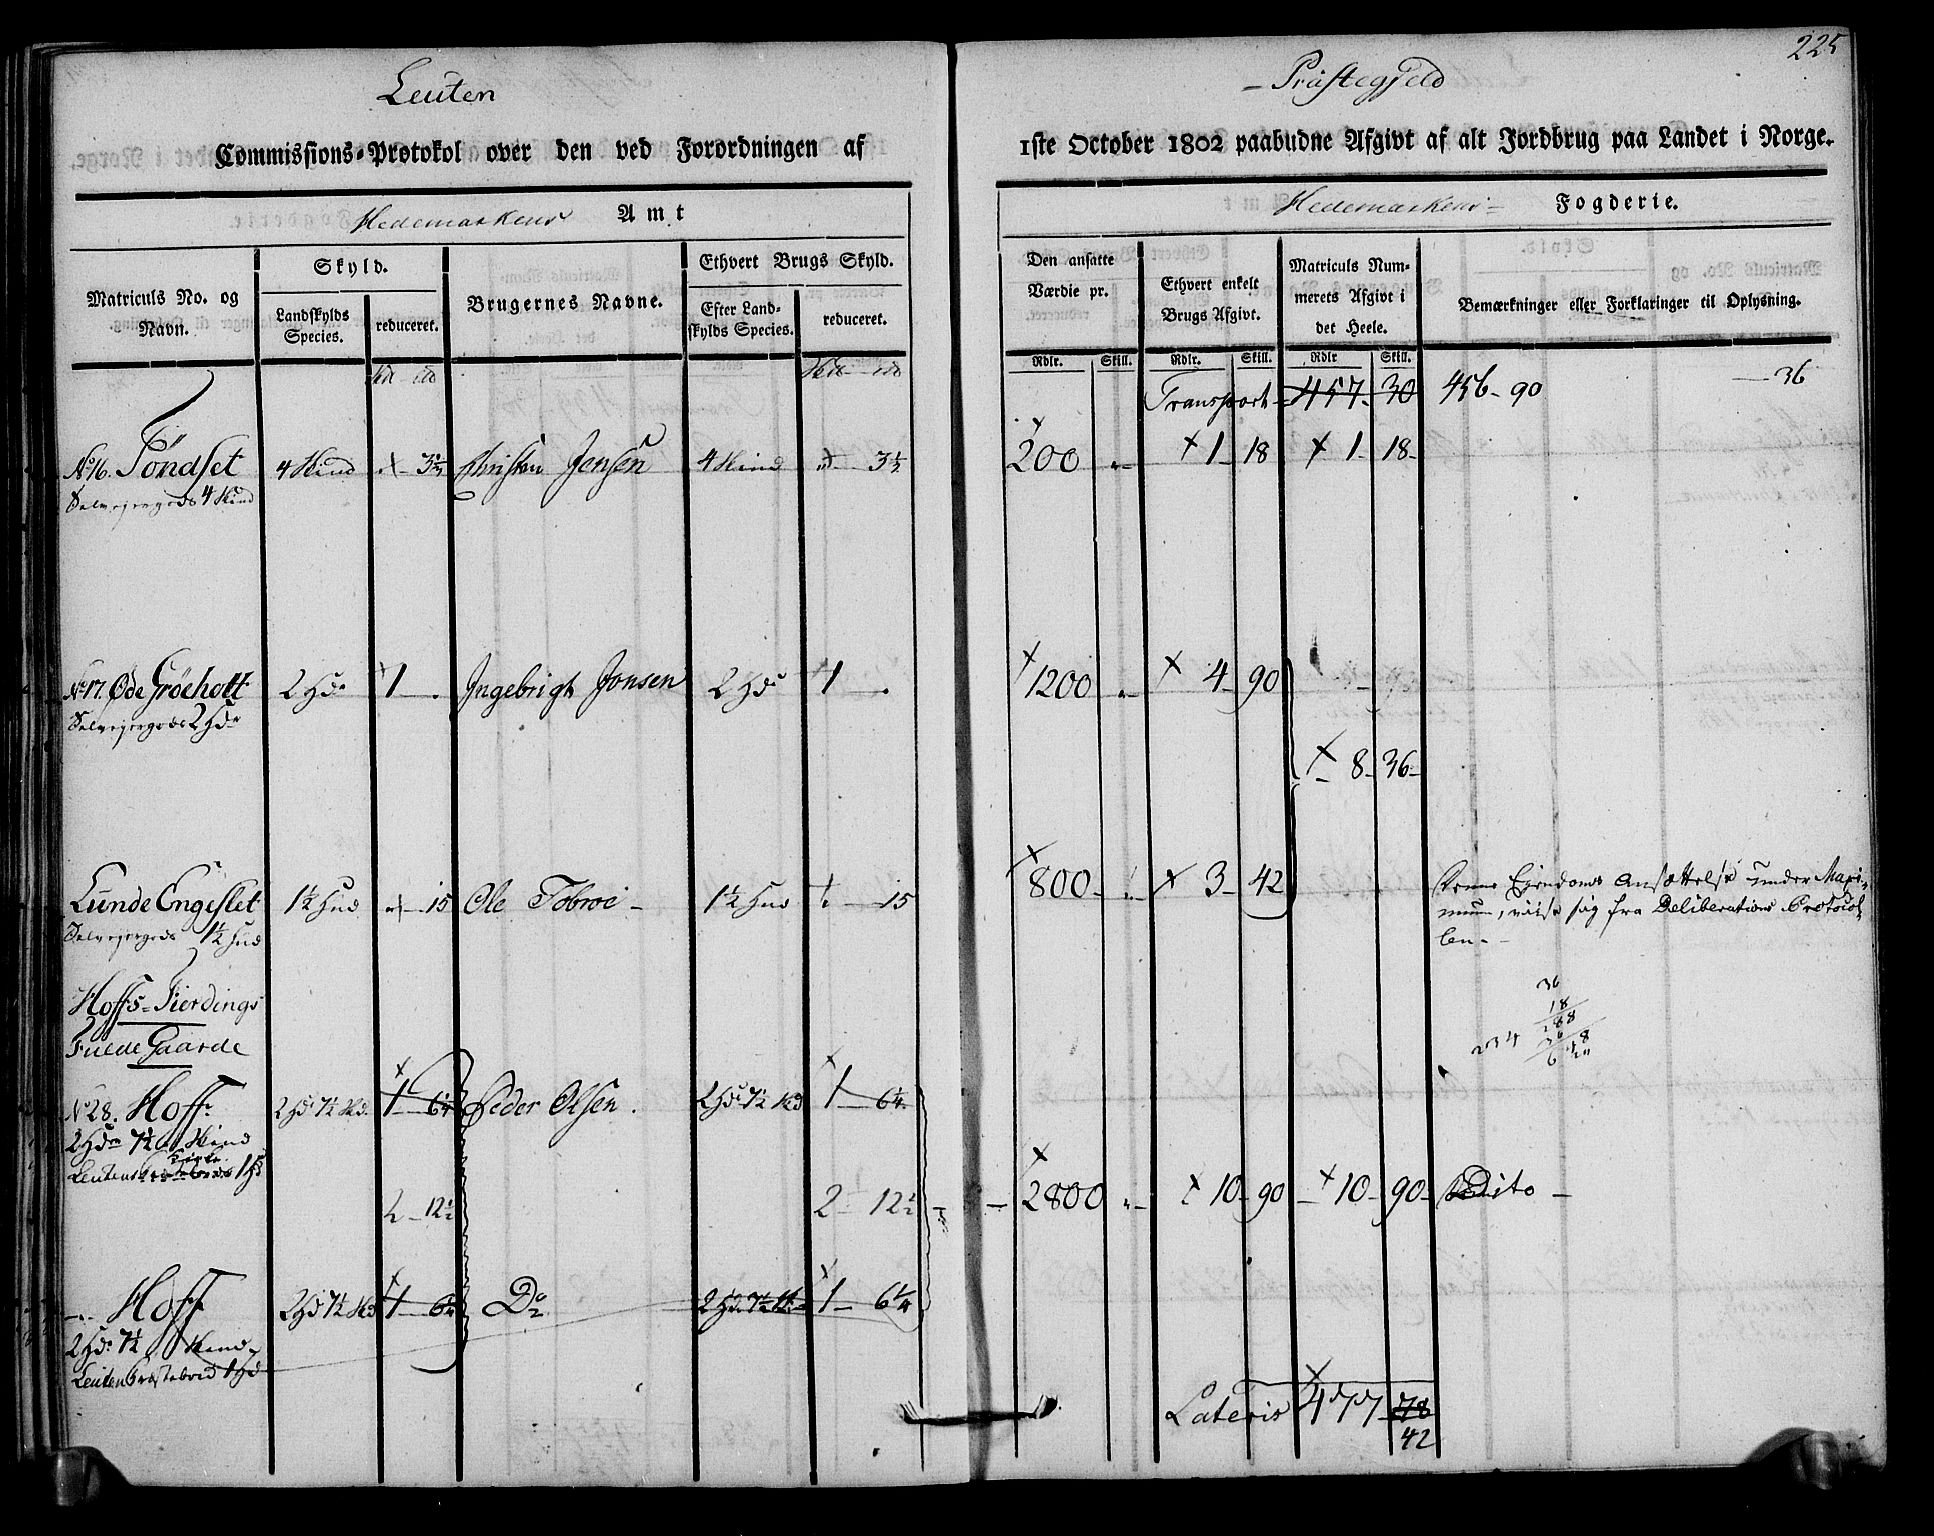 225
Leuten
Præstegjeld
Commissions-Protokol over den ved Forordningen af
1ste October 1802 paabudne Afgivt af alt Jordbrug paa Landet i Norge.
Hedemarkens Amt
Hedemarkens Fogderie.
Matriculs No. og Navn.
Skyld.
Landskylds Species.
reduceret.
Brugernes Navne.
Ethvert Brugs Skyld.
Efter Landskylds Species.
reduceret.
Den ansatte Værdie pr.
Ethvert enkelt Brugs Afgivt.
Matriculs Nummerets Afgivt i det Heele.
Bemærkninger eller Forklaringer til Oplysning.
Rdlr. Skill. Rdlr. Skill. Rdlr Skill.
Transport 457 30 456-90 36
No 16. Töndset 4 Hind 3½ Christen Jensen 4 Hind 3½ 200 1-18 1-18
Selvejergods 4 Hind
No 17. Øde Gröeholt 2 Hdr 1 Ingebrigt Jonsen 2 Hdr 1 1200 4-90
Selvejergods 2 Hdr
8-36
Lunde Engeslet 1½ Hud 15 Ole Tobroe 1½ Hud 15 800 3-42
Selvejergods 1½ Hud
Ansættelse under Maxi-
mum, fra Deliberations Protocol
len
Hoffs-Fierdings
Fulde Gaarde
36
18
288
234
No 28. Hoff 2 Hdr 7½ Hd. 1-6¼ Peder Olsen. 2 Hdr 7½ Hd 1-6¼
2 Hdr 7½ Hind
2-12½ 2-12½ 2800 10-90 10-90 Dito
Hoff 2 Hdr 7½ Hd 1-6¼ Do 2 Hdr 7½ H 1-6¼
2 Hdr 7½ Hind
Leuten Præstebord 1 Hd
Lateris 477 78
42